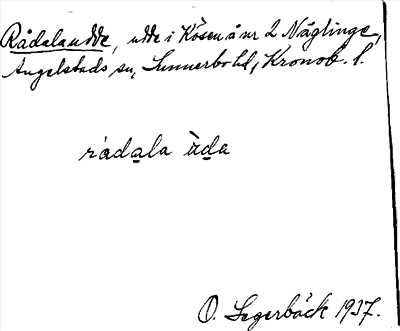 Rådalaudde, udde i Kösen å nr 2 Näglinge,
Angelstads sn, Sunnerbo hd, Kronob. l.
rådala ùda
O. Segerbäck 1937.